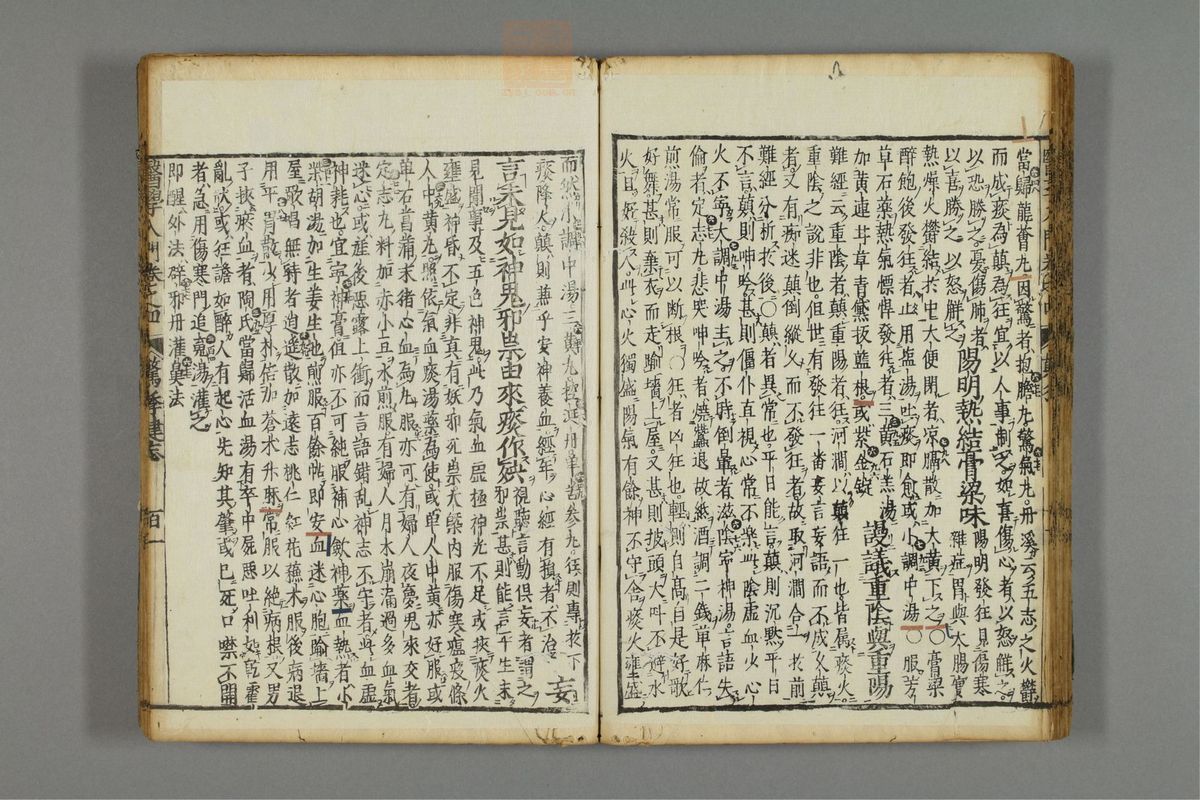 當歸龍會丸因驚者抱膽丸驚氣丸丹溪云五志之火鬱
而成痰為癲為狂宜以人事制之如喜傷心者以怒解之
以恐勝之憂傷肺者以喜勝之以怒解之
陽明熱結膏粱味陽明發狂見傷寒
雜症胃與大腸實熱燥火鬱結於中大便閉者凉膈散加大黃下之○膏粱
醉飽後發狂者止用塩湯吐痰即愈或小調中湯○服芳
草石藥熱氣慓悍發狂者三黃石羔湯
加黃連甘草青黛板藍根或紫金錠
謾議重陰與重陽
難經云重陰者癲重陽者狂河澗以癲狂一也皆属痰火
重陰之說非也但世有發狂一番妄言妄語而不成久癲
者又有痴迷顛倒縱久而不發狂者故取河澗合一於前
難經分析於後○癲者異常也平日能言癲則沉默平日
不言癲則呻吟甚則僵仆直視心常不樂此陰虛血少心
火不寧大調中湯主之不時倒暈者滋陰寧神湯言語失
倫者定志丸悲哭呻吟者燒蠶退故紙酒調二錢單麻仁
煎湯常服可以断根○狂者凶狂也輕則自高自是好歌
好舞甚則棄衣而走踰墻上屋又甚則披頭大叫不避水
火且好殺人此心火獨盛陽氣有餘神不守舍痰火壅盛
而然小調中湯三黃丸控涎丹單苦參丸狂則專於下
痰降火癲則兼乎安神養血經年心經有損者不治
妄言未見如神鬼邪祟由來痰作殃
視聽言動俱妄者謂之邪祟甚則能言平生未
見聞事及五色神鬼此乃氣血虛極神光不足或挾痰火
壅盛神昏不定非真有妖邪死祟大槩內服傷寒瘟疫條
人中黃丸照依氣血痰湯藥為使或单人中黃亦好服或
单石菖蒲末猪心血為丸服亦可有婦人夜夢鬼來交者
定志丸料加赤小豆水煎服有婦人月水崩漏過多血氣
迷心或產後惡露上衝而言語錯乱神志不守者此血虛
神耗也宜寧神膏但亦不可純服補心歛神藥血熱者小
柴胡湯加生姜生地煎服百餘帖即安血迷心胞踰墻上
屋歌唱無時者逍遙散加遠志桃仁紅花蘓木服後病退
用平胃散少用厚朴倍加蒼术升麻常服以絶病根又男
子挾瘀血者陶氏當歸活血湯有卒中屍惡吐利如乾霍
亂狀或狂譫如醉人有起心先知其肇或已死口噤不開
者急用傷寒門追魂湯灌之
即醒外法碎邪丹灌鼻法
醫學入門卷之四
百一